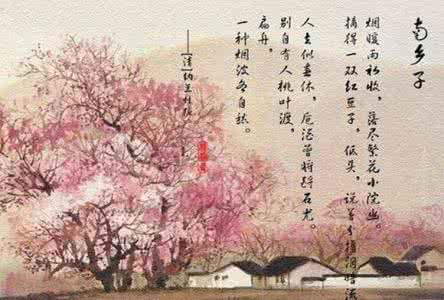 南乡子
烟暖雨初收,落尽繁花小院幽。
摘得一双红豆子,低头,说著分携泪暗流
人去似春休,卮酒曾将酹石尤。
别自有人桃叶渡,
扁舟,
一种烟波各自愁。
——[清]纳兰性德